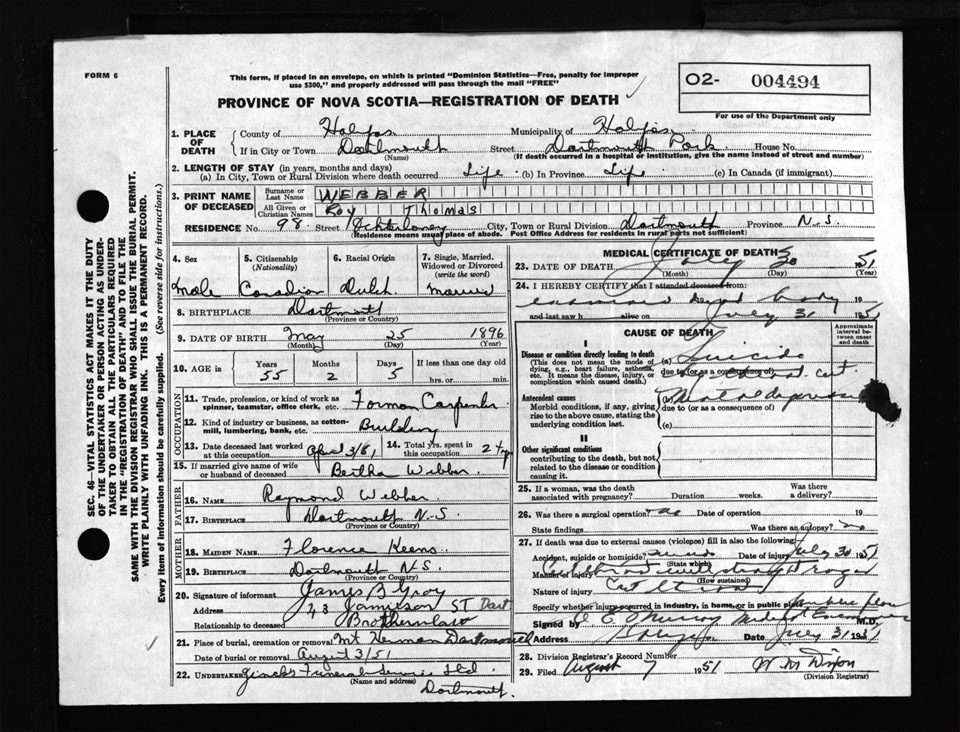 FORM 6
This form, if placed in an envelope, on which is printed "Dominion Statistics—Free, penalty for improper
use $300," and properly addressed will pass through the mail "FREE"
O2- 004494
For use of the Department only
PROVINCE OF NOVA SCOTIA—REGISTRATION OF DEATH
1. PLACE OF DEATH County of Halifax Municipality of Halifax
If in City or Town Dartmouth (Name) Street Dartmouth Park House No.
(If death occurred in a hospital or institution, give the name instead of street and number)
2. LENGTH OF STAY (in years, months and days)
(a) In City, Town or Rural Division where death occurred Life (b) In Province Life (c) In Canada (if immigrant)
3. PRINT NAME OF DECEASED Surname or Last Name WEBBER
All Given or Christian Names Roy Thomas
RESIDENCE No. 98 Street Ochterloney City, Town or Rural Division Dartmouth Province N.S.
(Residence means usual place of abode. Post Office Address for residents in rural parts not sufficient)
4. Sex Male
5. Citizenship (Nationality) Canadian
6. Racial Origin Dutch
7. Single, Married, Widowed or Divorced (write the word) Married
8. BIRTHPLACE Dartmouth
(Province or Country)
9. DATE OF BIRTH May 25 1896
(Month) (Day) (Year)
10. AGE in Years 55 Months 2 Days 5 If less than one day old hrs. or min.
OCCUPATION
11. Trade, profession, or kind of work as spinner, teamster, office clerk, etc. Forman Carpenter
12. Kind of industry or business, as cotton-mill, lumbering, bank, etc. Building
13. Date deceased last worked at this occupation
14. Total yrs. spent in this occupation
15. If married give name of wife or husband of deceased Bertha Webber
FATHER
16. NAME Raymond Webber
17. BIRTHPLACE Dartmouth N.S.
(Province or Country)
MOTHER
18. MAIDEN NAME Florence Keens
19. BIRTHPLACE Dartmouth N.S.
(Province or Country)
20. Signature of informant James B Gray
Address 23 Jamieson ST Dart
Relationship to deceased Brotherinlaw
21. Place of burial, cremation or removal Mt Herman Dartmouth
Date of burial or removal August 3/51
22. UNDERTAKER Zincks Funeral Service Ltd
(Name and address) Dartmouth.
MEDICAL CERTIFICATE OF DEATH
23. DATE OF DEATH July 30 1951
(Month) (Day) (Year)
24. I HEREBY CERTIFY that I attended deceased from
examined body 19
and last saw h alive on July 31 1951
CAUSE OF DEATH
Approximate interval between onset and death
I
Disease or condition directly leading to death
(This does not mean the mode of dying, e.g., heart failure, asthenia, etc. It means the disease, injury, or complication which caused death.)
(a) Suicide
due to (or as a consequence of) cut
Antecedent causes
Morbid conditions, if any, giving rise to the above cause, stating the underlying condition last.
(b) Mental depression
due to (or as a consequence of)
(c)
II
Other significant conditions
contributing to the death, but not related to the disease or condition causing it.
25. If a woman, was the death associated with pregnancy? Duration weeks. Was there a delivery?
26. Was there a surgical operation? no Date of operation 19
State findings Was there an autopsy? no
27. If death was due to external causes (violence) fill in also the following:
Accident, suicide or homicide? suicide Date of injury July 30 1951
(State which)
Manner of injury Cut with straight razor
(How sustained)
Nature of injury Cut
Specify whether injury occurred in industry, in home, or in public place
Signed by Murray Medical Examiner M.D.
Address Halifax Date July 31 1951
28. Division Registrar's Record Number
29. Filed August 7 1951 W M Dixon
(Division Registrar)
SEC. 46—VITAL STATISTICS ACT MAKES IT THE DUTY
OF THE UNDERTAKER OR PERSON ACTING AS UNDER-
TAKER TO OBTAIN ALL THE PARTICULARS REQUIRED
IN THE "REGISTRATION OF DEATH" AND TO FILE THE
SAME WITH THE DIVISION REGISTRAR WHO SHALL ISSUE THE BURIAL PERMIT.
WRITE PLAINLY WITH UNFADING INK. THIS IS A PERMANENT RECORD.
Every item of information should be carefully supplied. (See reverse side for instructions.)